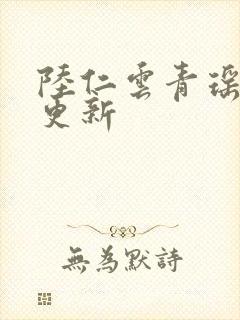 陸仁雲青瑶
更新
無為默詩